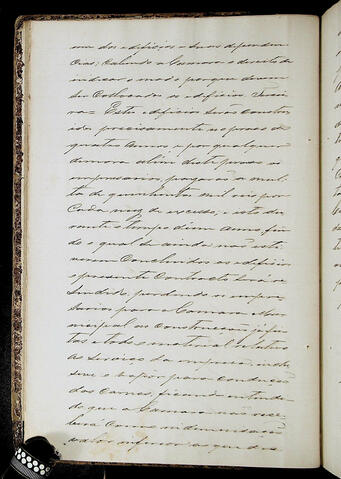 um dos edificios e suas dependen
cias; cabendo a Camara o direito de
indicar o modo porque devem
ser collocados os edificios. Tercei
ra= Estes edificios serão constru
idos precisamente no praso de
quatro annos e por qualquer
demora alem deste praso os
empresarios pagarão a mul
ta de quinhentos mil reis por
cada mez de excesso; e isto du
rante o tempo d'um anno, fin
do o qual se ainda não esti
verem concluidos os edificios
o presente Contracto será re
scindido, perdendo os empre
sarios para a Camara Mu
nicipal as construcções já fei
tas e todo o material relativo
ao serviço da empresa, inclu
sive o vapor para conducção
das carnes, ficando entendi
do que a Camara não rece
berá como indemnisação
valor inferior ao que des